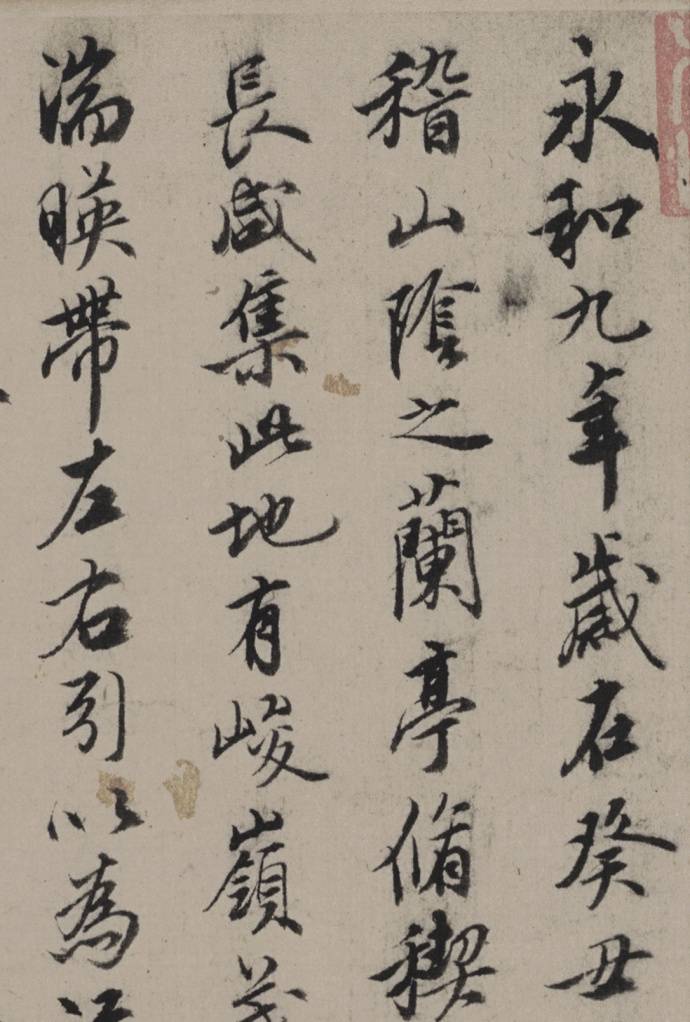 永和九年歲在癸丑
稽山陰之蘭亭脩稧
長咸集此地有峻嶺茂
湍暎帶左右引以為